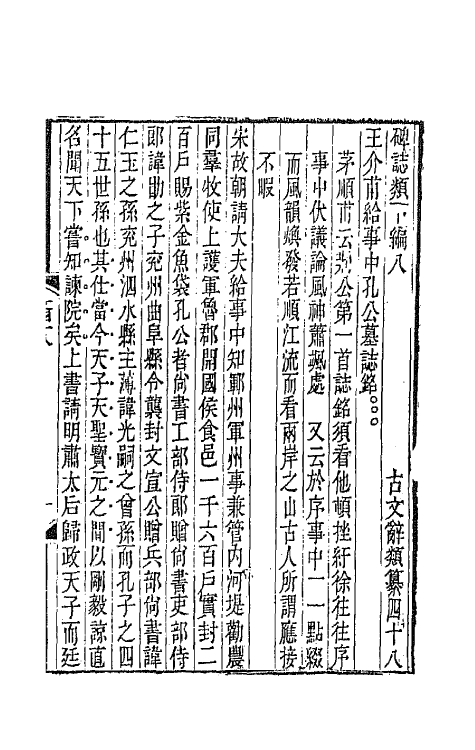 碑誌類下編八　古文辭類纂四十八
王介甫給事中孔公墓誌銘○○○
茅順甫云荆公第一首誌銘須看他頓挫紆徐往往序
事中伏議論風神蕭颯處　又云於序事中一一點綴
而風韻煥發若順江流而看兩岸之山古人所謂應接
不暇
宋故朝請大夫給事中知鄆州軍州事兼管內河堤勸農
同羣牧使上護軍魯郡開國侯食邑一千六百戶實封二
百戶賜紫金魚袋孔公者尚書工部侍郎贈尚書吏部侍
郎諱勖之子兖州曲阜縣令襲封文宣公贈兵部尚書諱
仁玉之孫兖州泗水縣主簿諱光嗣之曾孫而孔子之四
十五世孫也其仕當今天子天聖寶元之間以剛毅諒直
名聞天下嘗知諫院矣上書請明肅太后歸政天子而廷